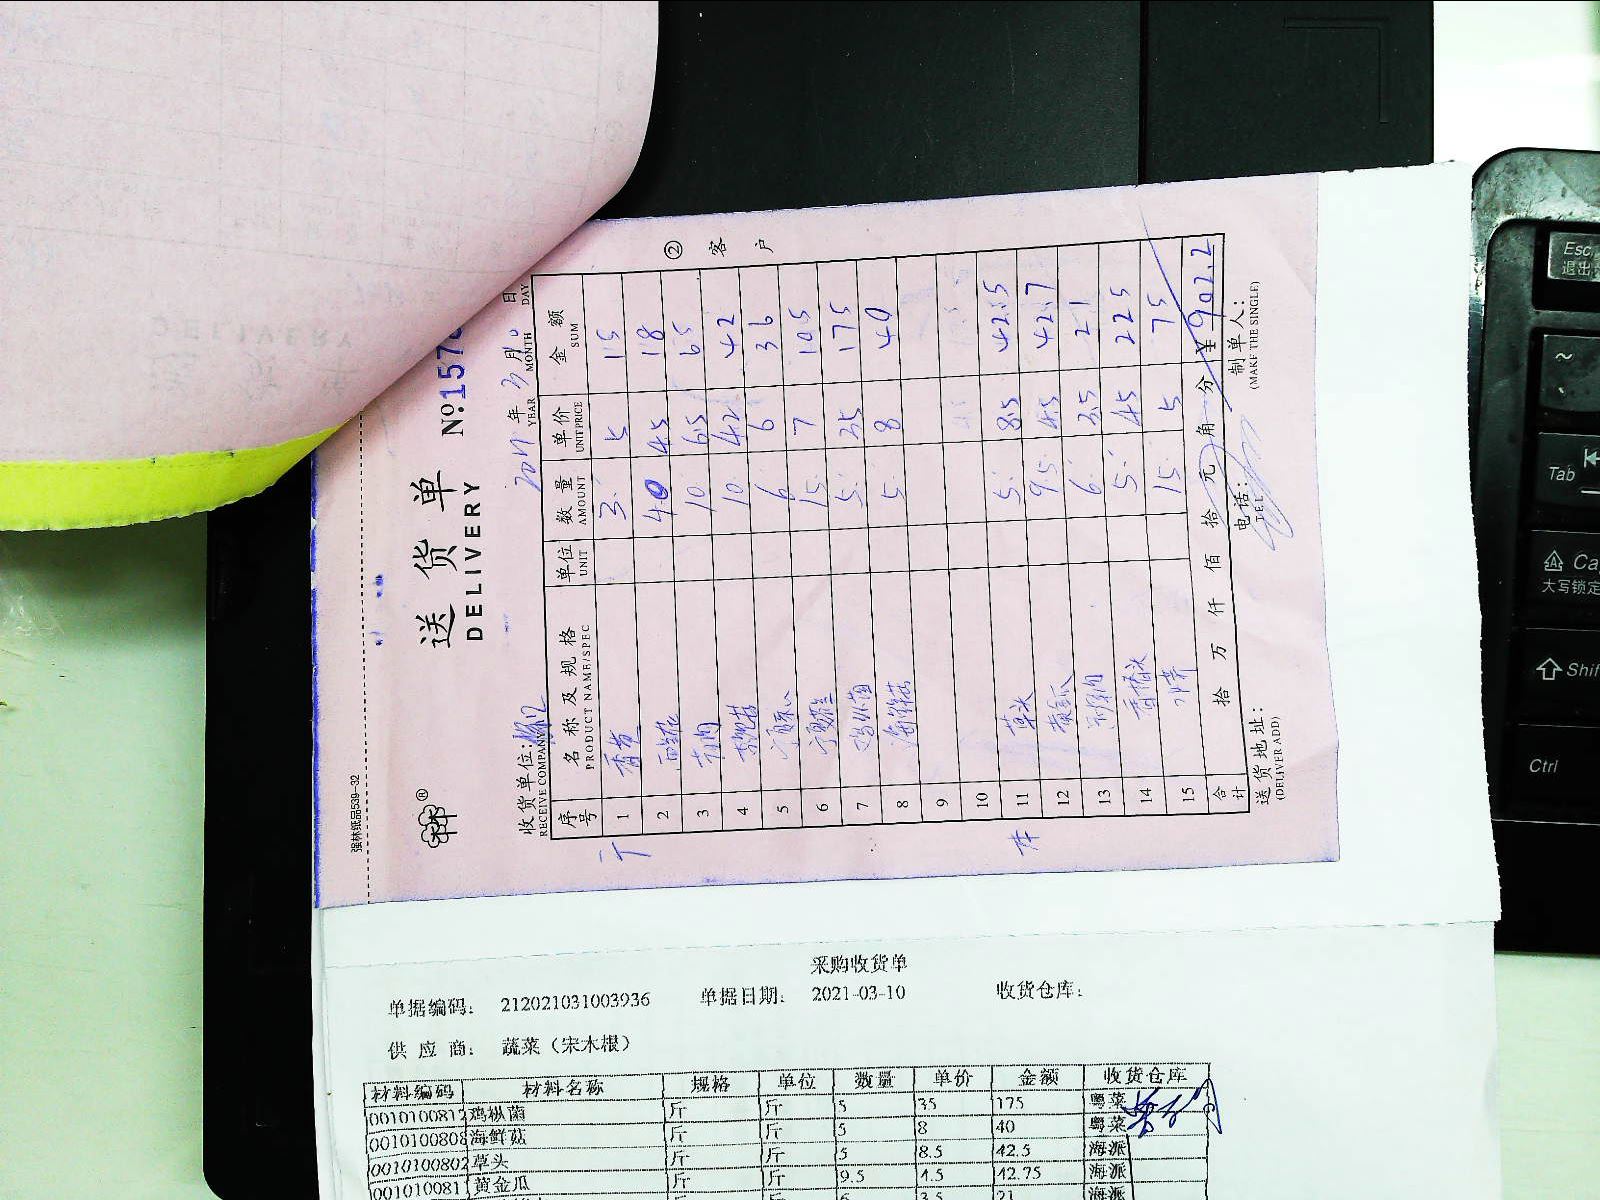 强林纸品539-32
送货单 No:1578
DELIVERY
② 客户
收货单位:
RECEIVE COMPANY
2021年3月10日
YEAR MONTH DAY
序号 名称及规格 单位 数量 单价 金额
PRODUCT NAME/SPEC UNIT AMOUNT UNIT PRICE SUM
1 香菇 3 5 15
2 40 45 18
3 10 6.5 65
4 10 4.2 42
5 6 6 36
6 15 7 105
7 鸡枞菌 5 35 175
8 海鲜菇 5 8 40
9
10
11 草头 5 8.5 42.5
12 黄金瓜 9.5 4.5 42.7
13 6 3.5 21
14 5 45 225
15 15 5 75
合计 拾 万 仟 佰 拾 元 角 分 ¥902.2
送货地址: 电话: 制单人:
(DELIVER ADD) TEL (MAKE THE SINGLE)
采购收货单
单据编码: 212021031003936 单据日期: 2021-03-10 收货仓库:
供应商: 蔬菜(宋木根)
材料编码 材料名称 规格 单位 数量 单价 金额 收货仓库
001010081 鸡枞菌 斤 斤 5 35 175 粤菜
0010100808 海鲜菇 斤 斤 5 8 40 粤菜
0010100802 草头 斤 斤 5 8.5 42.5 海派
001010081 黄金瓜 斤 斤 9.5 4.5 42.75 海派
6 3.5 21 海派
Esc
退出
~
Tab
Ca
大写锁定
Shif
Ctrl